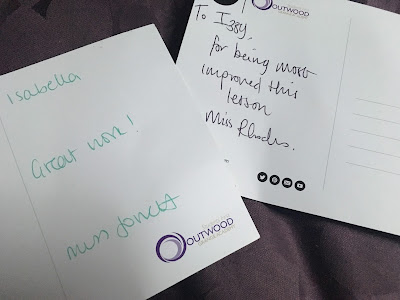 Isabella
Great work!
Miss
OUTWOOD
To Izzy,
for being most
improved this
lesson
Miss Rhodes.
OUTWOOD